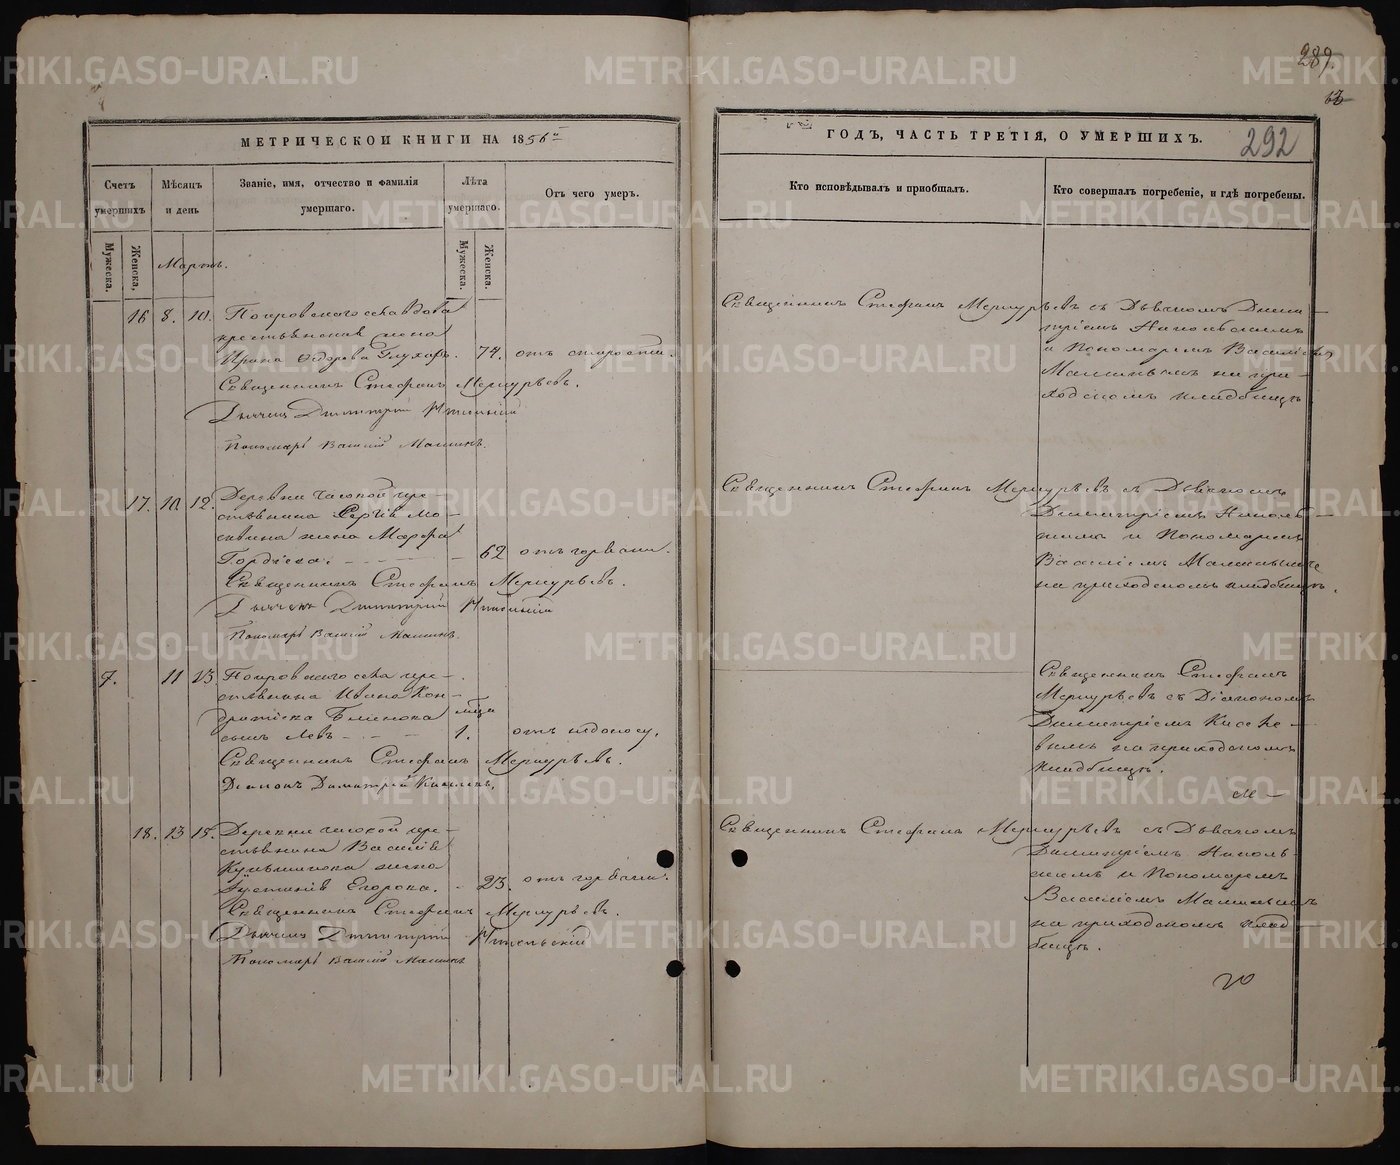 289.
МЕТРИЧЕСКОЙ КНИГИ НА 1856й
ГОДЪ, ЧАСТЬ ТРЕТІЯ, О УМЕРШИХЪ.
292
Счетъ умершихъ
Мѣсяцъ и день
Званіе, имя, отчество и фамилія умершаго.
Лѣта умершаго.
Отъ чего умеръ.
Кто исповѣдывалъ и пріобщалъ.
Кто совершалъ погребеніе, и гдѣ погребены.
Мужеска.
Женска,
Мужеска.
Женска.
Мартъ.
16 8. 10. Покровскаго села вдова
крестьянская жена
Ирина Ѳедорова Глухаръ. 74. отъ старости.
Священникъ Стефанъ Меркурьевъ.
Дьячекъ Димитрій
Пономарь Василій Малинъ.
Священникъ Стефанъ Меркурьевъ съ Дьячкомъ Дими-
тріемъ
и Пономаремъ Василіемъ
на при-
ходскомъ кладбищѣ
17. 10. 12. Деревни Часовой кре-
стьянина Сергія Мо-
сквина жена Марѳа
Гордѣева. 62 отъ горячки.
Священникъ Стефанъ Меркурьевъ.
Дьячекъ Димитрій
Пономарь Василій Малинъ.
Священникъ Стефанъ Меркурьевъ съ Дьячкомъ
Димитріемъ
и Пономаремъ
Василіемъ
на приходскомъ кладбищѣ.
7. 11 13. Покровскаго села кре-
стьянина Ивана Кон-
дратьева
сынъ Левъ 1. отъ недоносу.
Священникъ Стефанъ Меркурьевъ.
Діаконъ Димитрій Киселевъ,
Священникъ Стефанъ
Меркурьевъ съ Діакономъ
Димитріемъ Киселе-
вымъ на приходскомъ
кладбищѣ.
18. 13 15. Деревни Часовой кре-
стьянина Василія
Кукшинова жена
Іустинія Егорова. 23. отъ горячки.
Священникъ Стефанъ Меркурьевъ.
Дьячекъ Димитрій
Пономарь Василій Малинъ
Священникъ Стефанъ Меркурьевъ съ Дьячкомъ
Димитріемъ
и Пономаремъ
Василіемъ
на приходскомъ клад-
бищѣ.
METRIKI.GASO-URAL.RU